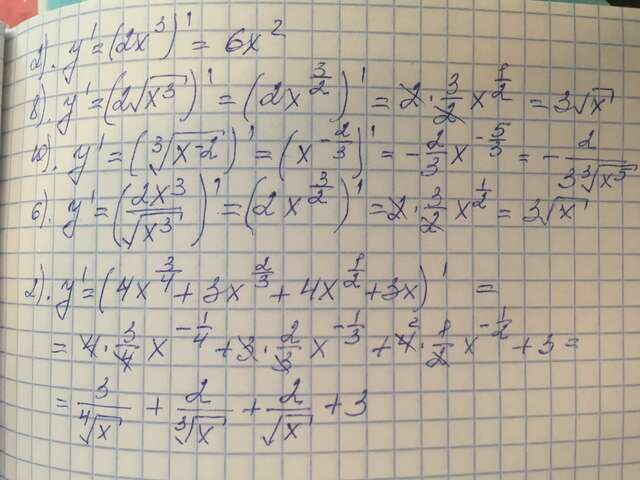 2). y' = (2x³)' = 6x²
8). y' = (2√x³)' = (2x^(3/2))' = 2·3/2 x^(1/2) = 3√x
10). y' = (∛x⁻²)' = (x^(-2/3))' = -2/3 x^(-5/3) = -2/(3∛x⁵)
6). y' = (2x³/√x³)' = (2x^(3/2))' = 2·3/2 x^(1/2) = 3√x
2). y' = (4x^(3/4) + 3x^(2/3) + 4x^(1/2) + 3x)' =
= 4·3/4 x^(-1/4) + 3·2/3 x^(-1/3) + 4²·1/2 x^(-1/2) + 3 =
= 3/⁴√x + 2/∛x + 2/√x + 3